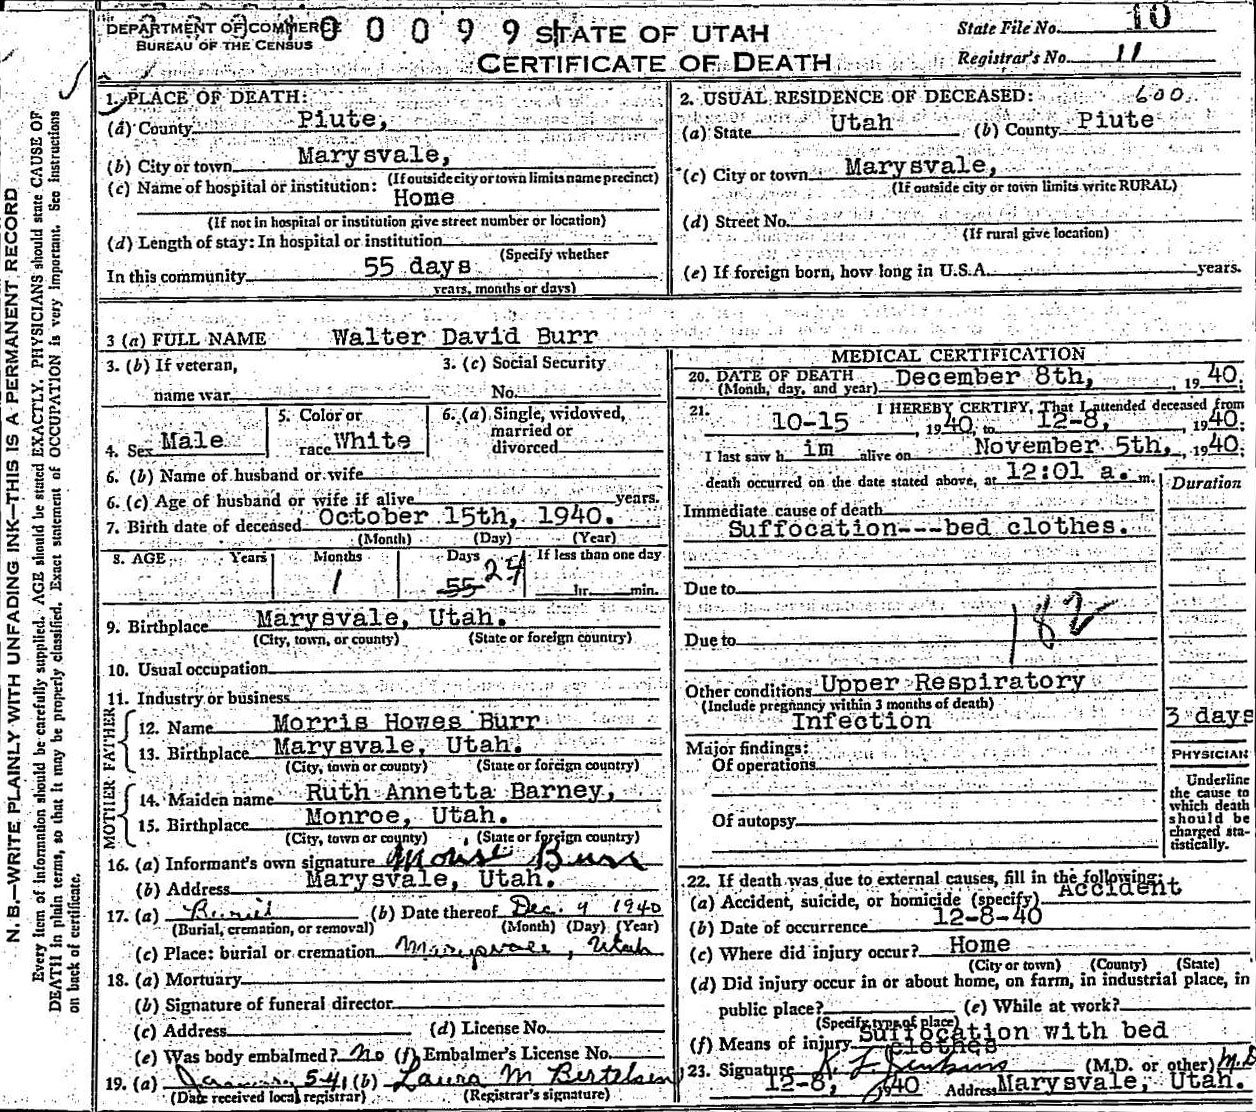 DEPARTMENT OF COMMERCE 0 0 0 9 9 STATE OF UTAH
BUREAU OF THE CENSUS
CERTIFICATE OF DEATH
State File No. 10
Registrar's No. 11
N. B.—WRITE PLAINLY WITH UNFADING INK—THIS IS A PERMANENT RECORD
Every item of information should be carefully supplied. AGE should be stated EXACTLY. PHYSICIANS should state CAUSE OF
DEATH in plain terms, so that it may be properly classified. Exact statement of OCCUPATION is very important. See instructions
on back of certificate.
1. PLACE OF DEATH:
(a) County Piute,
(b) City or town Marysvale,
(If outside city or town limits name precinct)
(c) Name of hospital or institution:
Home
(If not in hospital or institution give street number or location)
(d) Length of stay: In hospital or institution
(Specify whether
In this community 55 days
years, months or days)
2. USUAL RESIDENCE OF DECEASED: 600
(a) State Utah (b) County Piute
(c) City or town Marysvale,
(If outside city or town limits write RURAL)
(d) Street No.
(If rural give location)
(e) If foreign born, how long in U.S.A. years.
3 (a) FULL NAME Walter David Burr
3. (b) If veteran,
name war
3. (c) Social Security
No.
4. Sex Male
5. Color or
race White
6. (a) Single, widowed,
married or
divorced
6. (b) Name of husband or wife
6. (c) Age of husband or wife if alive years.
7. Birth date of deceased October 15th, 1940.
(Month) (Day) (Year)
8. AGE Years Months Days If less than one day
1 55 24 hr. min.
9. Birthplace Marysvale, Utah.
(City, town, or county) (State or foreign country)
10. Usual occupation
11. Industry or business
FATHER
12. Name Morris Howes Burr
13. Birthplace Marysvale, Utah.
(City, town or county) (State or foreign country)
MOTHER
14. Maiden name Ruth Annetta Barney,
15. Birthplace Monroe, Utah.
(City, town or county) (State or foreign country)
16. (a) Informant's own signature Morise Burr
(b) Address Marysvale, Utah.
17. (a) Burial (b) Date thereof Dec. 9 1940
(Burial, cremation, or removal) (Month) (Day) (Year)
(c) Place: burial or cremation Marysvale, Utah
18. (a) Mortuary
(b) Signature of funeral director
(c) Address (d) License No.
(e) Was body embalmed? No (f) Embalmer's License No.
19. (a) January 5-41 (b) Laura M Bertelsen
(Date received local registrar) (Registrar's signature)
MEDICAL CERTIFICATION
20. DATE OF DEATH December 8th, 1940.
(Month, day, and year)
21. I HEREBY CERTIFY, That I attended deceased from
10-15, 1940, to 12-8, 1940.
I last saw him alive on November 5th, 1940;
death occurred on the date stated above, at 12:01 a. m.
Duration
Immediate cause of death
Suffocation---bed clothes.
Due to
182
Due to
Other conditions Upper Respiratory
(Include pregnancy within 3 months of death)
Infection 3 days
Major findings:
Of operations
Of autopsy
PHYSICIAN
Underline
the cause to
which death
should be
charged sta-
tistically.
22. If death was due to external causes, fill in the following:
(a) Accident, suicide, or homicide (specify) Accident
(b) Date of occurrence 12-8-40
(c) Where did injury occur? Home
(City or town) (County) (State)
(d) Did injury occur in or about home, on farm, in industrial place, in
public place? (e) While at work?
(Specify type of place)
(f) Means of injury Suffocation with bed
clothes
23. Signature K. L. Jenkins (M.D. or other) M.D
12-8, 1940 Address Marysvale, Utah.